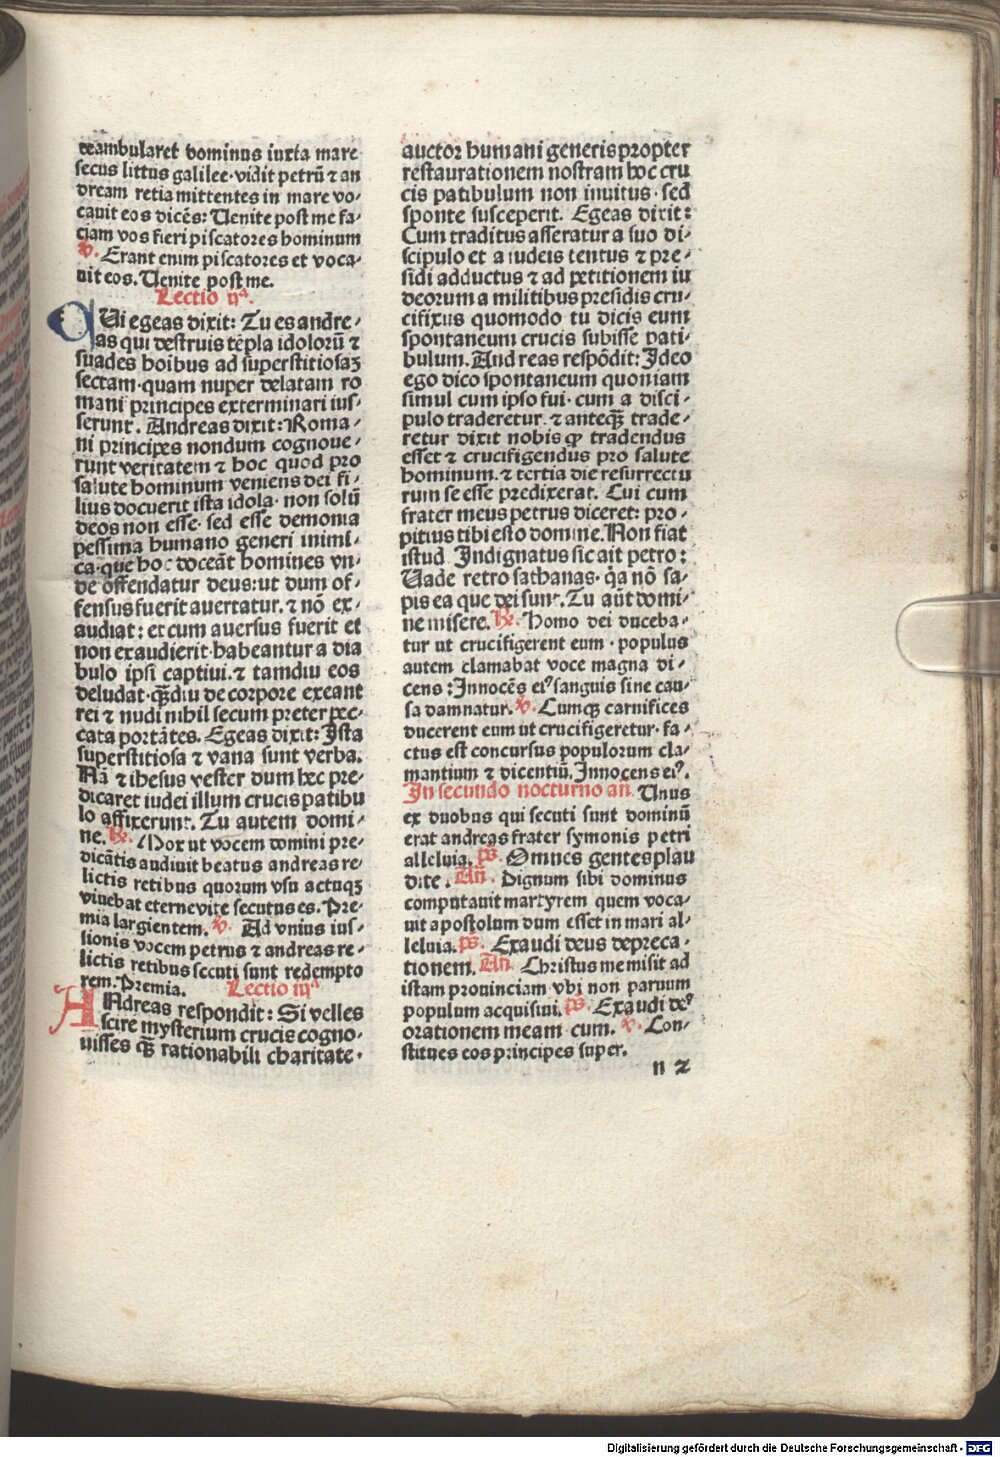 deambularet dominus iuxta mare
secus littus galilee·vidit petrū ⁊ an
dream retia mittentes in mare vo⸗
cauit eos dicēs: Uenite post me fa⸗
ciam vos fieri piscatores hominum
℣. Erant enim piscatores et voca⸗
uit eos. Uenite post me.
Lectio ijª.
QUi egeas dixit: Tu es andre⸗
as qui destruis tēpla idolorū ⁊
suades hoibus ad superstitiosaꝫ
sectam·quam nuper delatam ro
mani principes exterminari ius⸗
serunt. Andreas dixit: Roma⸗
ni principes nondum cognoue⸗
runt veritatem ⁊ hoc quod pro
salute hominum veniens dei fi⸗
lius docuerit ista idola· non solū
deos non esse· sed esse demonia
pessima humano generi inimi⸗
ca·que hoc doceāt homines vn⸗
de offendatur deus: ut dum of⸗
fensus fuerit auertatur. ⁊ nō ex⸗
audiat: et cum auersus fuerit et
non exaudierit·habeantur a dia
bulo ipsi captiui. ⁊ tamdiu eos
deludat·qᷓdiu de corpore exeant
rei ⁊ nudi nihil secum preter pec⸗
cata portātes. Egeas dixit: Ista
superstitiosa ⁊ vana sunt verba.
Nā ⁊ ihesus vester dum hec pre⸗
dicaret iudei illum crucis patibu
lo affixerunt. Tu autem domi⸗
ne. ℟. Mox ut vocem domini pre⸗
dicātis audiuit beatus andreas re⸗
lictis retibus quorum vsu actuqꝫ
viuebat eterne vite secutus es. Pre⸗
mia largientem. ℣. Ad vnius ius⸗
sionis vocem petrus ⁊ andreas re⸗
lictis retibus secuti sunt redempto
rem. Premia. Lectio iijª
ANdreas respondit: Si velles
scire mysterium crucis cogno⸗
uisses qᷓ rationabili charitate·
auctor humani generis propter
restaurationem nostram hoc cru
cis patibulum non inuitus· sed
sponte susceperit. Egeas dixit:
Cum traditus asseratur a suo di⸗
scipulo et a iudeis tentus ⁊ pre⸗
sidi adductus ⁊ ad petitionem iu
deorum a militibus presidis cru⸗
cifixus quomodo tu dicis eum
spontaneum crucis subisse pati⸗
bulum. Andreas respōdit: Ideo
ego dico spontaneum quoniam
simul cum ipso fui· cum a disci⸗
pulo traderetur. ⁊ anteqᷓ trade⸗
retur dixit nobis ꝙ tradendus
esset ⁊ crucifigendus pro salute
hominum. ⁊ tertia die resurrectu
rum se esse predixerat. Cui cum
frater meus petrus diceret: pro⸗
pitius tibi esto domine. Non fiat
istud Indignatus sic ait petro:
Uade retro sathanas· qͥa nō sa⸗
pis ea que dei sunt. Tu aūt domi⸗
ne misere. ℟. Homo dei duceba⸗
tur ut crucifigerent eum· populus
autem clamabat voce magna di⸗
cens: Innocēs eiꝰ sanguis sine cau⸗
sa damnatur. ℣. Cumqꝫ carnifices
ducerent eum ut crucifigeretur· fa⸗
ctus est concursus populorum cla⸗
mantium ⁊ dicentiū. Innocens eiꝰ.
In secundo nocturno an̄. Unus
ex duobus qui secuti sunt dominū
erat andreas frater symonis petri
alleluia. ps̄. Omnes gentes plau
dite. An̄. Dignum sibi dominus
computauit martyrem quem voca⸗
uit apostolum dum esset in mari al⸗
leluia. ps̄. Exaudi deus depreca⸗
tionem. An̄. Christus me misit ad
istam prouinciam vbi non paruum
populum acquisiui. ps̄. Exaudi deꝰ
orationem meam cum. ℣. Con⸗
stitues eos principes super.
n 2
Digitalisierung gefördert durch die Deutsche Forschungsgemeinschaft - DFG